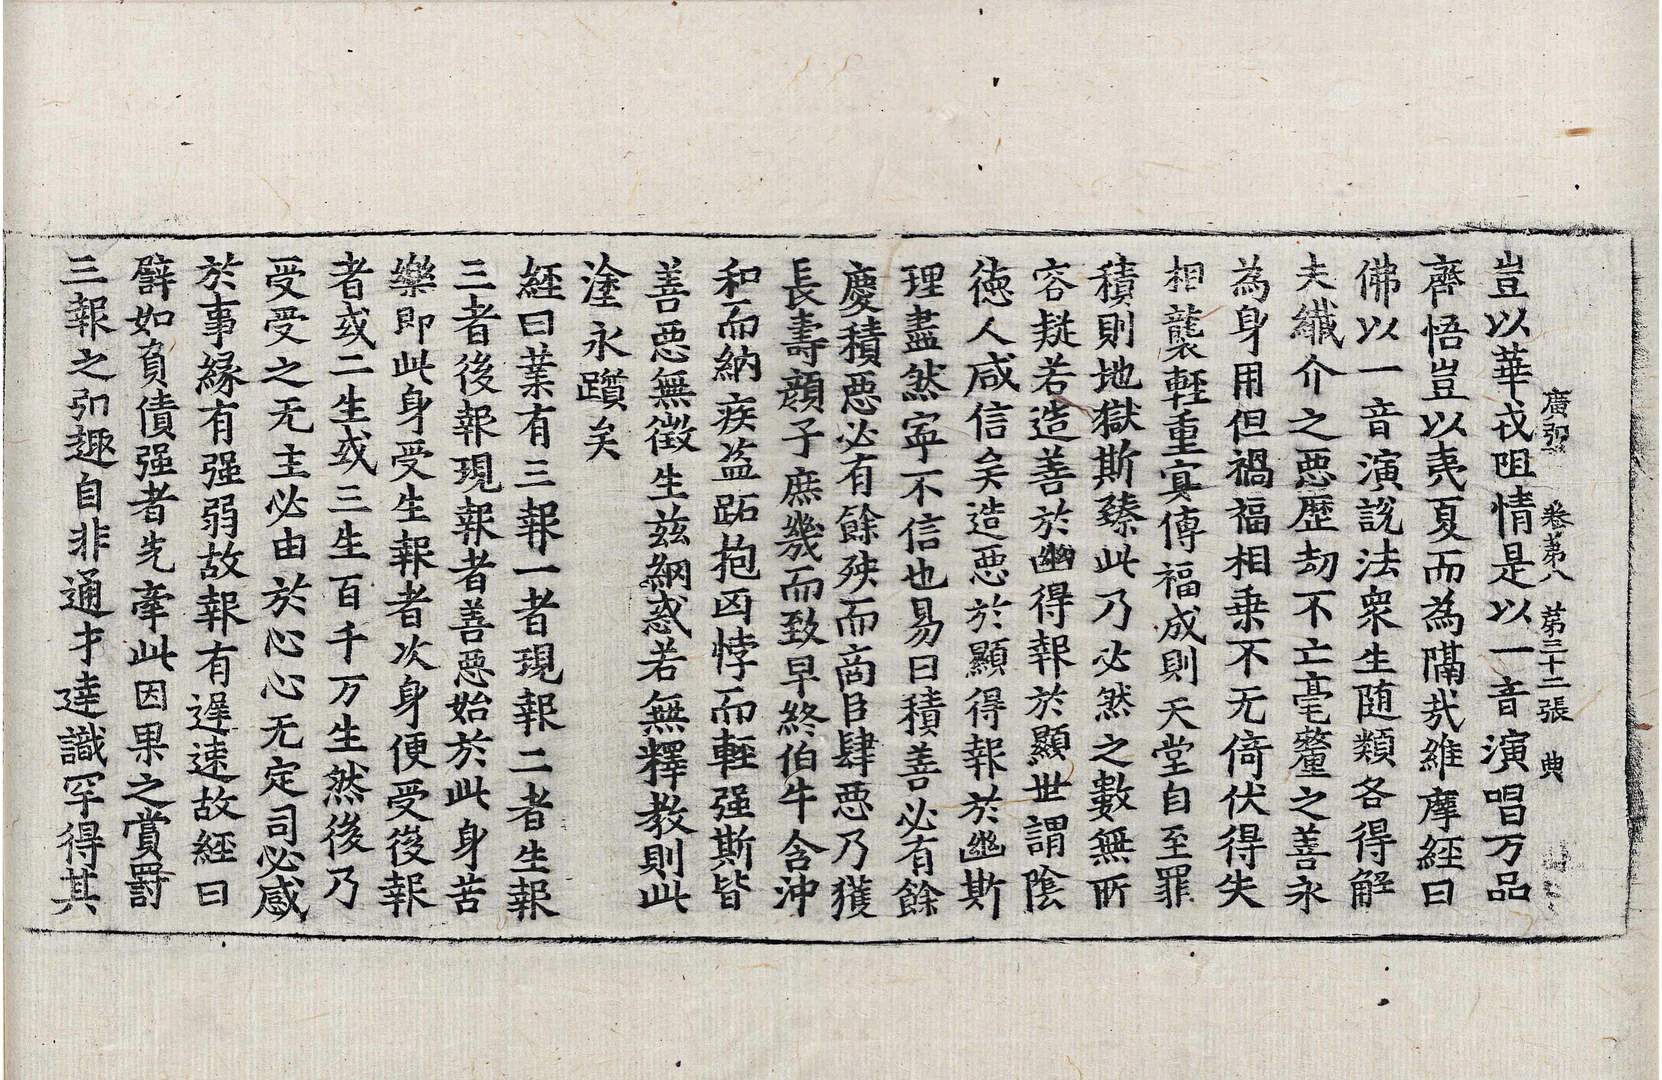 廣弘 卷第八 第三十二張 典
豈以華戎阻情是以一音演唱万品
齊悟豈以夷夏而為隔㢤維摩經曰
佛以一音演說法衆生随類各得解
夫纖介之惡歷劫不亡毫氂之善永
為身用但禍福相乗不无倚伏得失
相襲輕重冥傳福成則天堂自至罪
積則地獄斯臻此乃必然之數無所
容疑若造善於幽得報於顯世謂陰
徳人咸信矣造惡於顯得報於幽斯
理盡然寕不信也易曰積善必有餘
慶積惡必有餘殃而商臣肆惡乃獲
長壽顔子庶幾而致早終伯牛含沖
和而納疾盗跖抱凶悖而輕强斯皆
善惡無徵生兹網惑若無釋教則此
塗永躓矣
經曰業有三報一者現報二者生報
三者後報現報者善惡始於此身苦
樂即此身受生報者次身便受後報
者或二生或三生百千万生然後乃
受受之无主必由於心心无定司必感
於事緣有强弱故報有遲速故經曰
譬如負債强者先牽此因果之賞罸
三報之弘趣自非通才達識罕得其